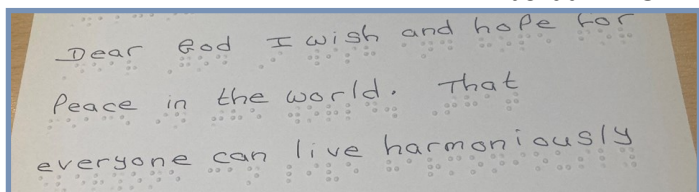 Dear God I wish and hope for
Peace in the world. That
everyone can live harmoniously